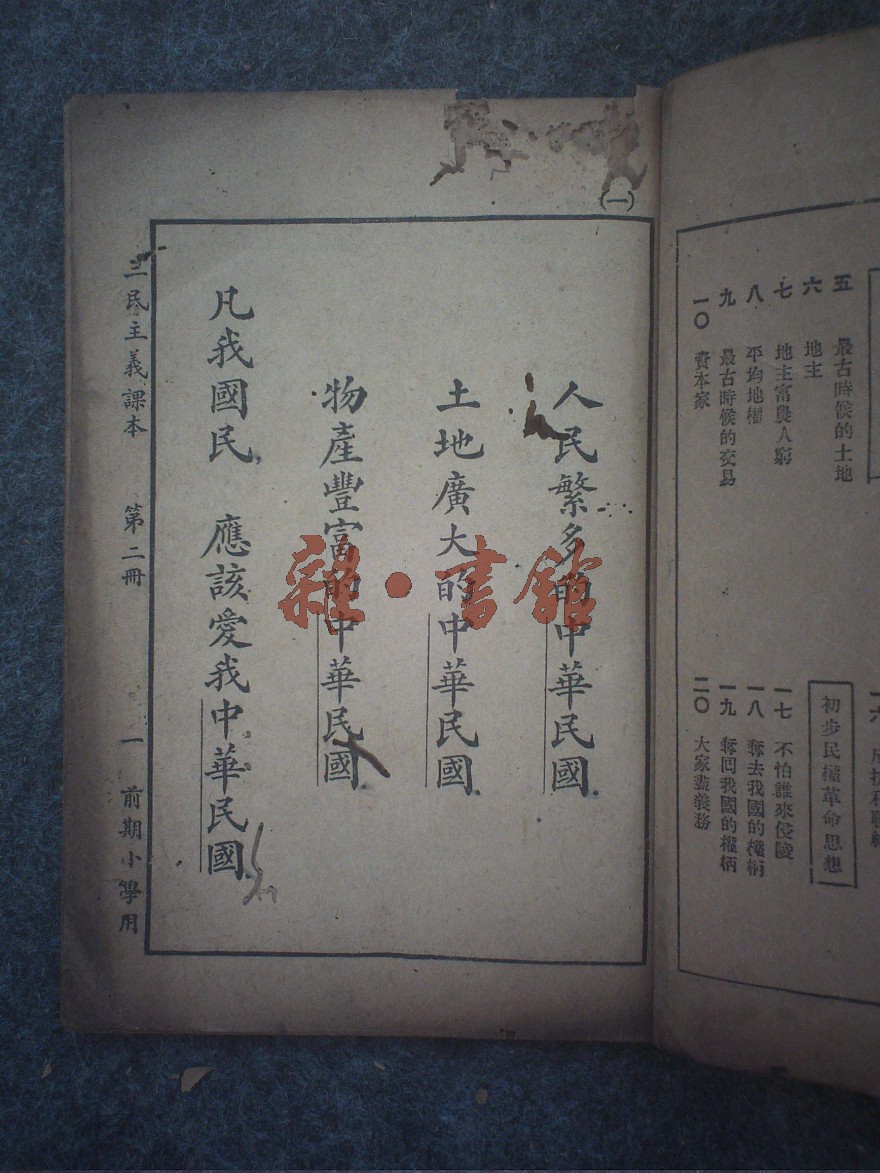 五　最古時候的土地
六　地主
七　地主富農人窮
八　平均地權
九　最古時候的交易
一〇　資本家
初步民權革命思想
一七　不怕誰來侵陵
一八　奪去我國的權柄
一九　奪回我國的權柄
二〇　大家盡義務
(一)
人民繁多的中華民國
土地廣大的中華民國
物產豐富的中華民國
凡我國民　應該愛我中華民國
三民主義課本　第二冊　一　前期小學用
雜·書館